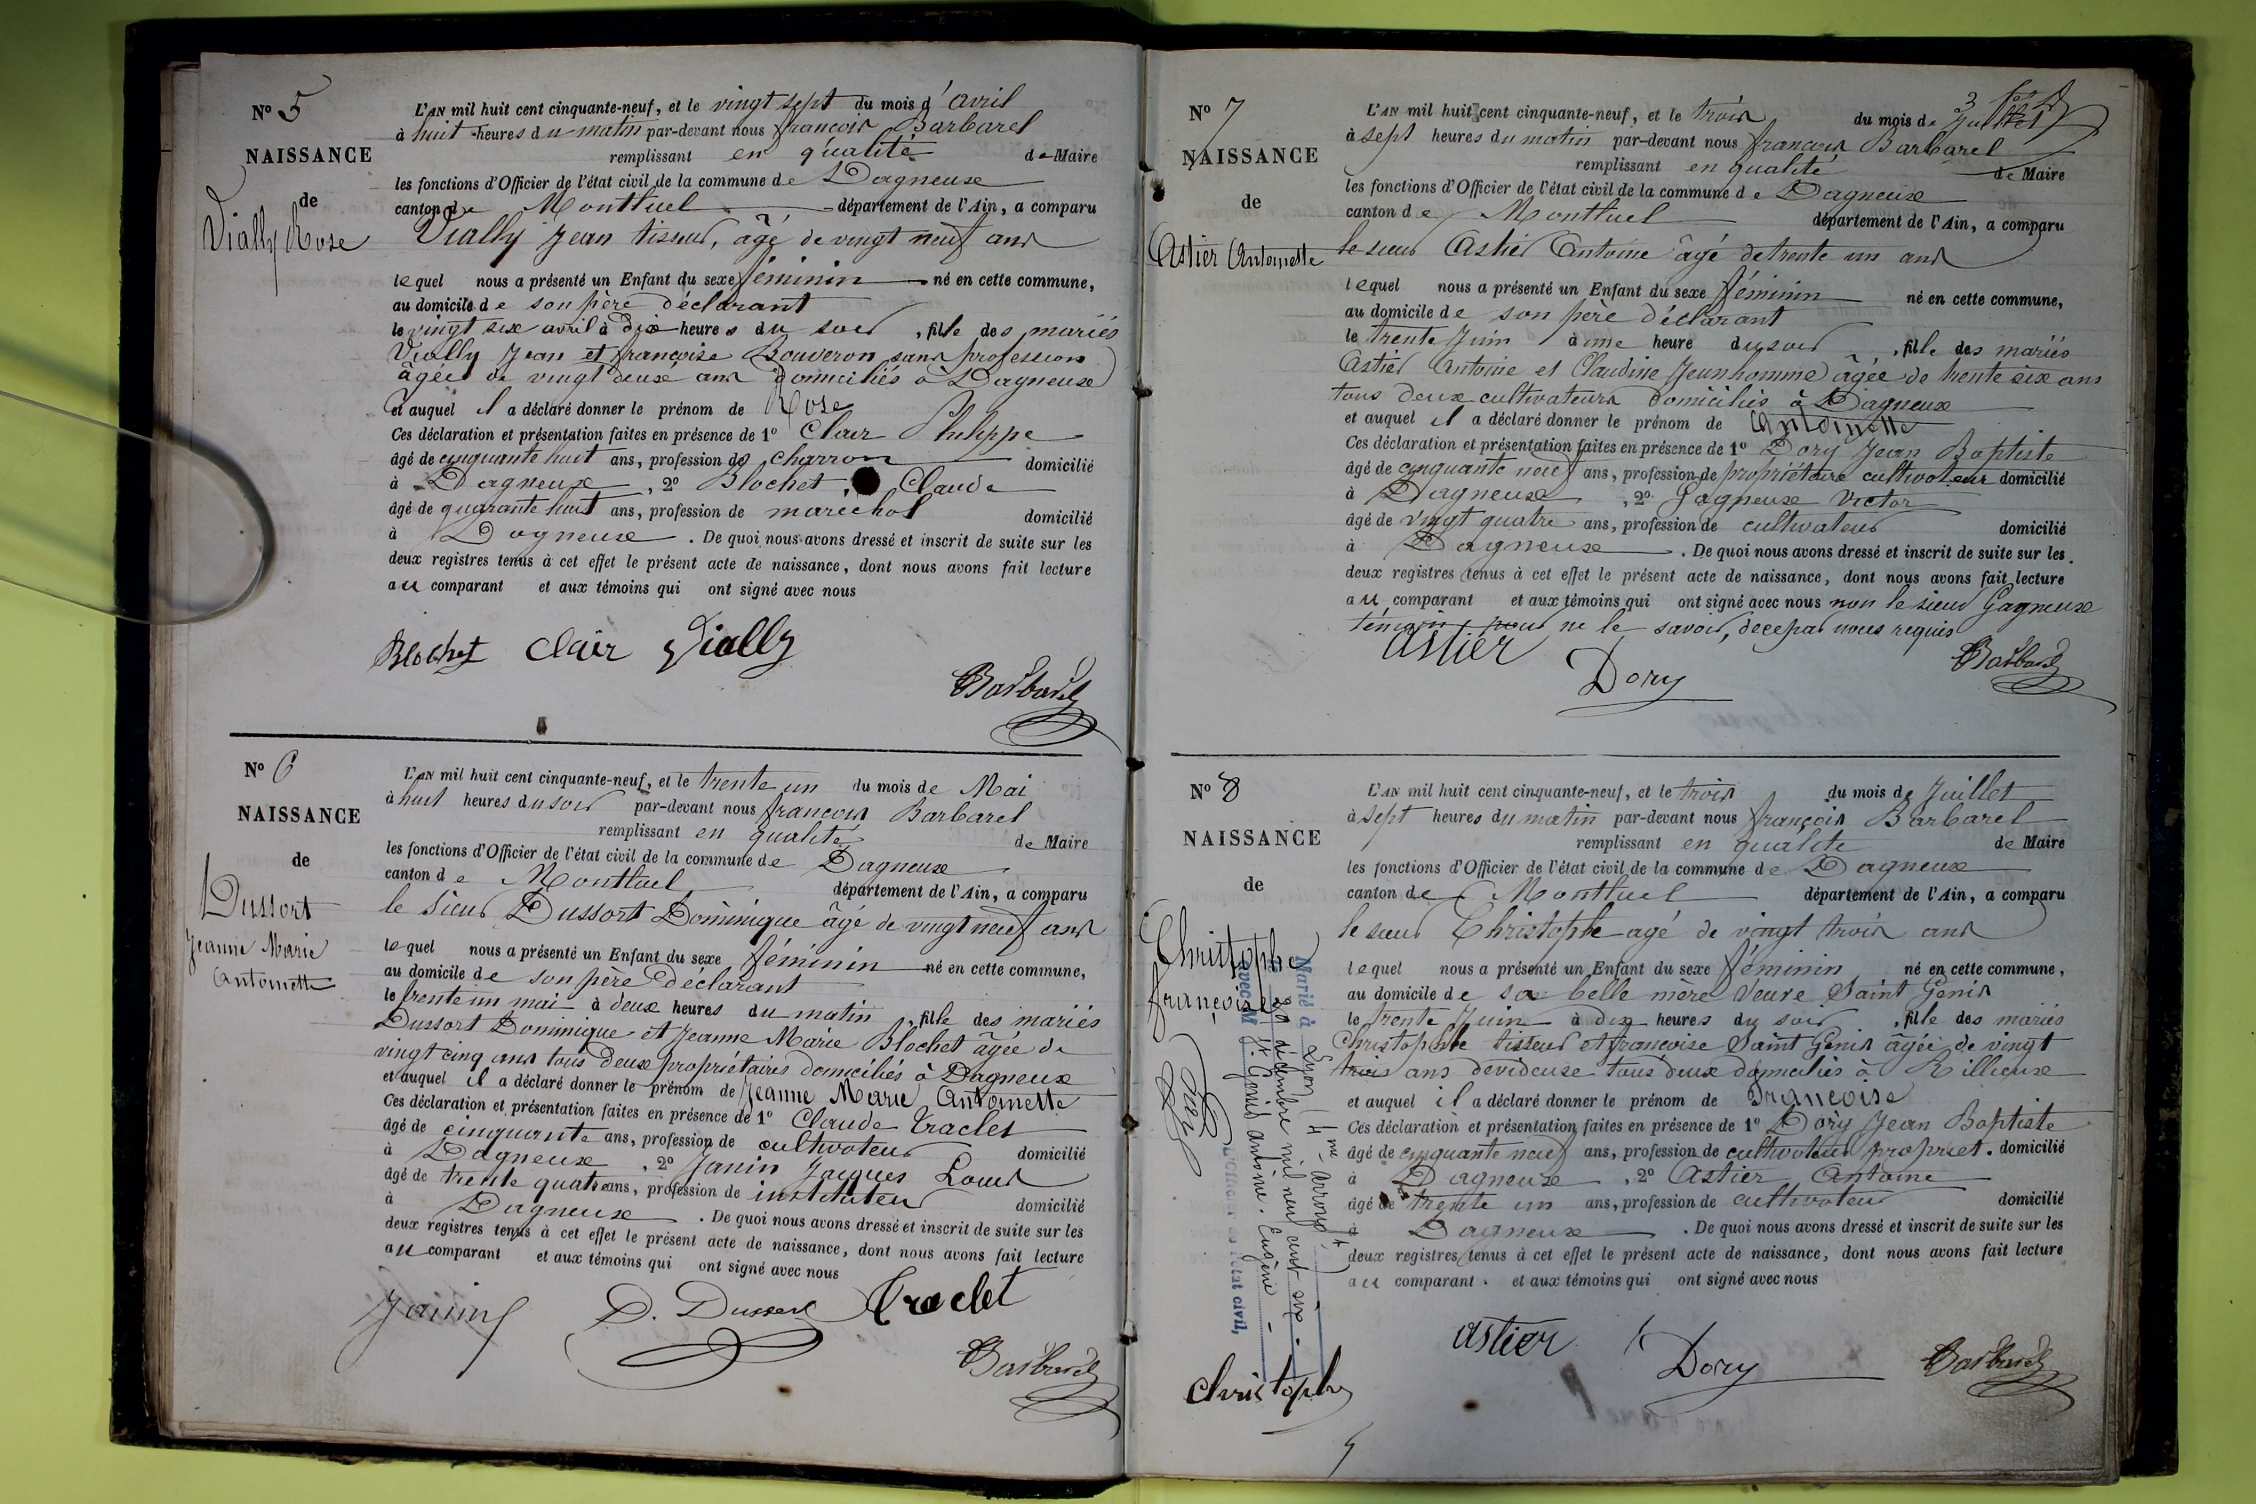 N° 5
NAISSANCE
de
Vially Rose
L'AN mil huit cent cinquante-neuf, et le vingt sept du mois d'avril
à huit heures du matin par-devant nous françois Barbarel
remplissant en qualité de Maire
les fonctions d'Officier de l'état civil de la commune de Dagneux
canton de Montluel département de l'Ain, a comparu
Vially Jean tisseur, âgé de vingt neuf ans
lequel nous a présenté un Enfant du sexe féminin né en cette commune,
au domicile de son père déclarant
le vingt six avril à dix heures du soir, fille des mariés
Vially Jean et françoise Bouveron sans profession
âgée de vingt deux ans domiciliés à Dagneux
et auquel il a déclaré donner le prénom de Rose
Ces déclaration et présentation faites en présence de 1° Clair Philippe
âgé de cinquante huit ans, profession de charron domicilié
à Dagneux, 2° Blochet Claude
âgé de quarante huit ans, profession de maréchal domicilié
à Dagneux. De quoi nous avons dressé et inscrit de suite sur les
deux registres tenus à cet effet le présent acte de naissance, dont nous avons fait lecture
au comparant et aux témoins qui ont signé avec nous
Blochet Clair Vially
Barbarel
N° 6
NAISSANCE
de
Dussort
Jeanne Marie
Antoinette
L'AN mil huit cent cinquante-neuf, et le trente un du mois de Mai
à huit heures du soir par-devant nous françois Barbarel
remplissant en qualité de Maire
les fonctions d'Officier de l'état civil de la commune de Dagneux
canton de Montluel département de l'Ain, a comparu
le sieur Dussort Dominique âgé de vingt neuf ans
lequel nous a présenté un Enfant du sexe féminin né en cette commune,
au domicile de son père déclarant
le trente un mai à deux heures du matin, fille des mariés
Dussort Dominique et Jeanne Marie Blochet âgée de
vingt cinq ans tous deux propriétaires domiciliés à Dagneux
et auquel il a déclaré donner le prénom de Jeanne Marie Antoinette
Ces déclaration et présentation faites en présence de 1° Claude Traclet
âgé de cinquante ans, profession de cultivateur domicilié
à Dagneux, 2° Janin Jacques Louis
âgé de trente quatre ans, profession de instituteur domicilié
à Dagneux. De quoi nous avons dressé et inscrit de suite sur les
deux registres tenus à cet effet le présent acte de naissance, dont nous avons fait lecture
au comparant et aux témoins qui ont signé avec nous
Janin D. Dussort Traclet
Barbarel
N° 7
NAISSANCE
de
Astier Antoinette
L'AN mil huit cent cinquante-neuf, et le trois du mois de 3 Juillet
à sept heures du matin par-devant nous françois Barbarel
remplissant en qualité de Maire
les fonctions d'Officier de l'état civil de la commune de Dagneux
canton de Montluel département de l'Ain, a comparu
le sieur Astier Antoine âgé de trente un ans
lequel nous a présenté un Enfant du sexe féminin né en cette commune,
au domicile de son père déclarant
le trente Juin à une heure du soir, fille des mariés
Astier Antoine et Claudine Jeunhomme âgée de trente six ans
tous deux cultivateurs domiciliés à Dagneux
et auquel il a déclaré donner le prénom de Antoinette
Ces déclaration et présentation faites en présence de 1° Dory Jean Baptiste
âgé de cinquante neuf ans, profession de propriétaire cultivateur domicilié
à Dagneux, 2° Gagneux Victor
âgé de vingt quatre ans, profession de cultivateur domicilié
à Dagneux. De quoi nous avons dressé et inscrit de suite sur les
deux registres tenus à cet effet le présent acte de naissance, dont nous avons fait lecture
au comparant et aux témoins qui ont signé avec nous non le sieur Gagneux
témoin, pour ne le savoir, de ce par nous requis
Astier
Dory
Barbarel
N° 8
NAISSANCE
de
Christophe
françoise
Marié à Lyon (4me arrondt)
le 20 décembre mil neuf cent six.
avec M. St. Genis Antoine. Eugène
L'Officier de l'état civil,
L'AN mil huit cent cinquante-neuf, et le trois du mois de Juillet
à sept heures du matin par-devant nous françois Barbarel
remplissant en qualité de Maire
les fonctions d'Officier de l'état civil de la commune de Dagneux
canton de Montluel département de l'Ain, a comparu
le sieur Christophe agé de vingt trois ans
lequel nous a présenté un Enfant du sexe féminin né en cette commune,
au domicile de sa belle mère Veuve Saint Genis
le trente Juin à dix heures du soir, fille des mariés
Christophe tisseur et françoise Saint Genis âgée de vingt
trois ans dévideuse tous deux domiciliés à Rillieux
et auquel il a déclaré donner le prénom de Françoise
Ces déclaration et présentation faites en présence de 1° Dory Jean Baptiste
âgé de cinquante neuf ans, profession de cultivateur propriet. domicilié
à Dagneux, 2° Astier Antoine
âgé de trente un ans, profession de cultivateur domicilié
à Dagneux. De quoi nous avons dressé et inscrit de suite sur les
deux registres tenus à cet effet le présent acte de naissance, dont nous avons fait lecture
au comparant. et aux témoins qui ont signé avec nous
Astier Dory Barbarel
Christophe